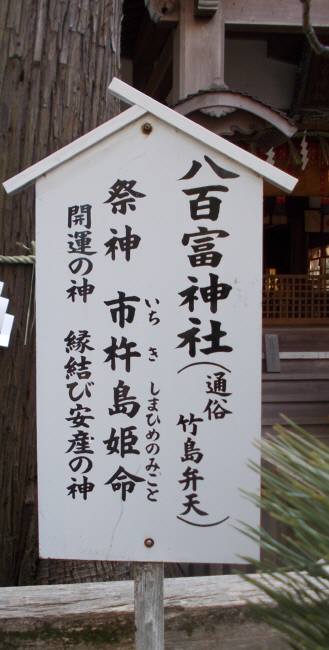 八百富神社（通俗 竹島弁天）
祭神 市杵島姫命
いち き しまひめのみこと
開運の神 縁結び安産の神